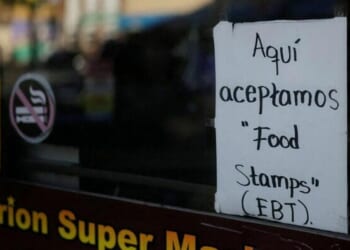 Aquí
aceptamos
"Food
Stamps"
(EBT).
rion Super Ma